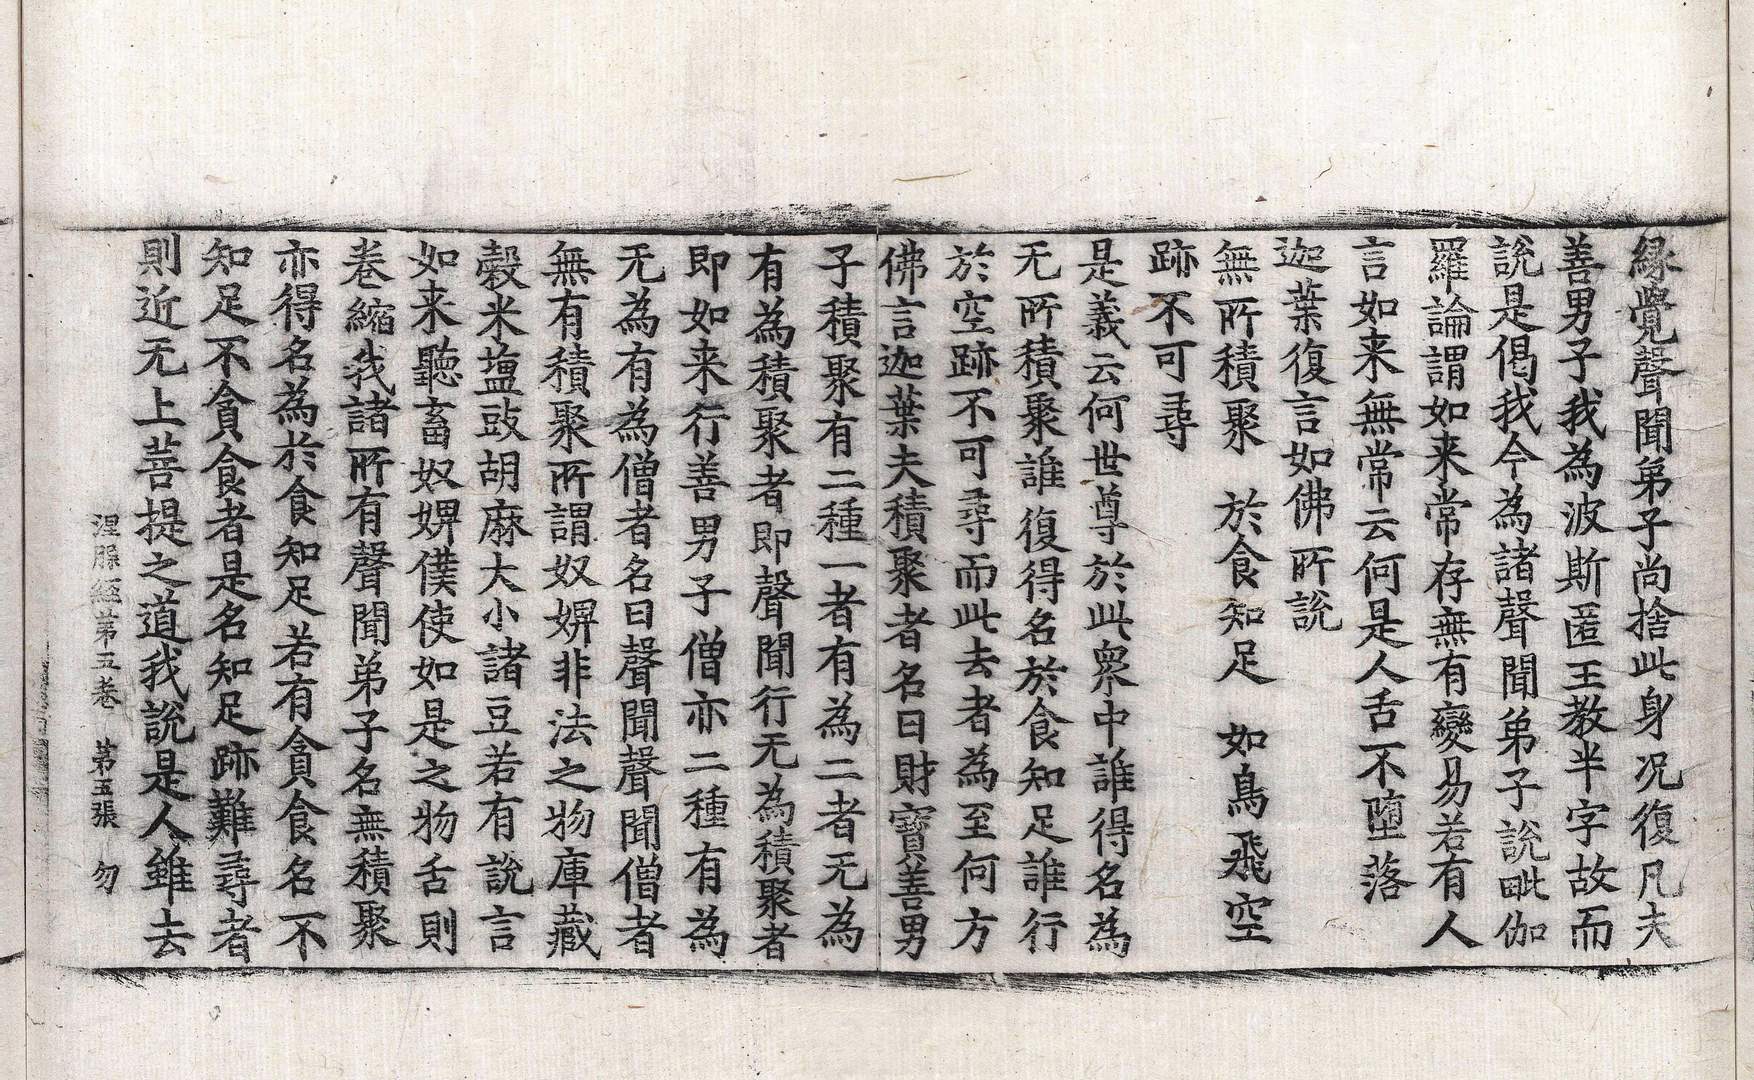 緣覺聲聞弟子尚捨此身况復凡夫
善男子我為波斯匿王教半字故而
說是偈我今為諸聲聞弟子說毗伽
羅論謂如来常存無有變易若有人
言如来無常云何是人舌不墮落
迦葉復言如佛所說
無所積聚　於食知足　如鳥飛空
跡不可尋
是義云何世尊於此衆中誰得名為
无所積聚誰復得名於食知足誰行
於空跡不可尋而此去者為至何方
佛言迦葉夫積聚者名曰財寳善男
子積聚有二種一者有為二者无為
有為積聚者即聲聞行无為積聚者
即如来行善男子僧亦二種有為
无為有為僧者名曰聲聞聲聞僧者
無有積聚所謂奴婢非法之物庫藏
穀米塩豉胡麻大小諸豆若有說言
如来聽畜奴婢僕使如是之物舌則
卷縮我諸所有聲聞弟子名無積聚
亦得名為於食知足若有貪食名不
知足不貪食者是名知足跡難尋者
則近无上菩提之道我說是人雖去
涅槃經第五卷　第五張　勿